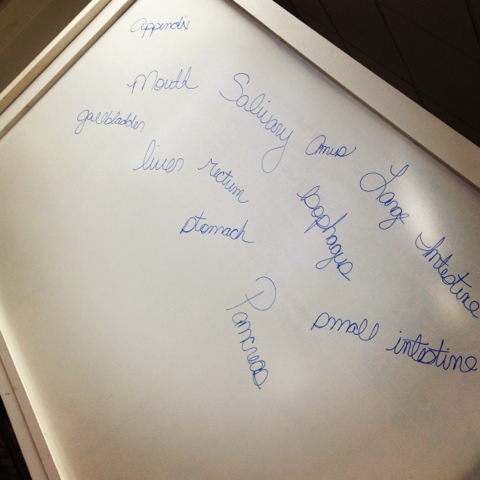 Appendix
Mouth
Salivary
gallbladder
Anus
Large Intestine
liver
rectum
Esophagus
stomach
Pancreas
small intestine